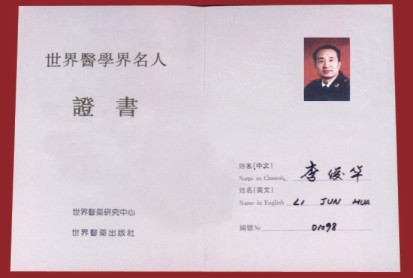 世界醫學界名人
證書
世界醫藥研究中心
世界醫藥出版社
姓名(中文)
Name in Chinese, 李俊华
姓名(英文)
Name in English LI JUN HUA
編號№ 01098